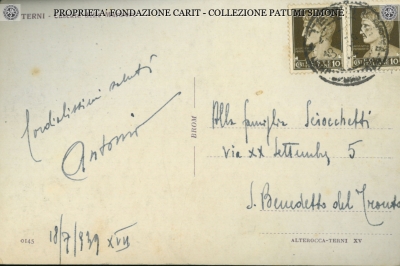 PROPRIETA' FONDAZIONE CARIT - COLLEZIONE PATUMI SIMONE
TERNI -
10
10
Cordialissimi saluti
Antonio
18/7/939 XVII
BROM
Alla famiglia Sciocchetti
Via XX Settembre 5
S. Benedetto del Tronto
0145
ALTEROCCA-TERNI XV